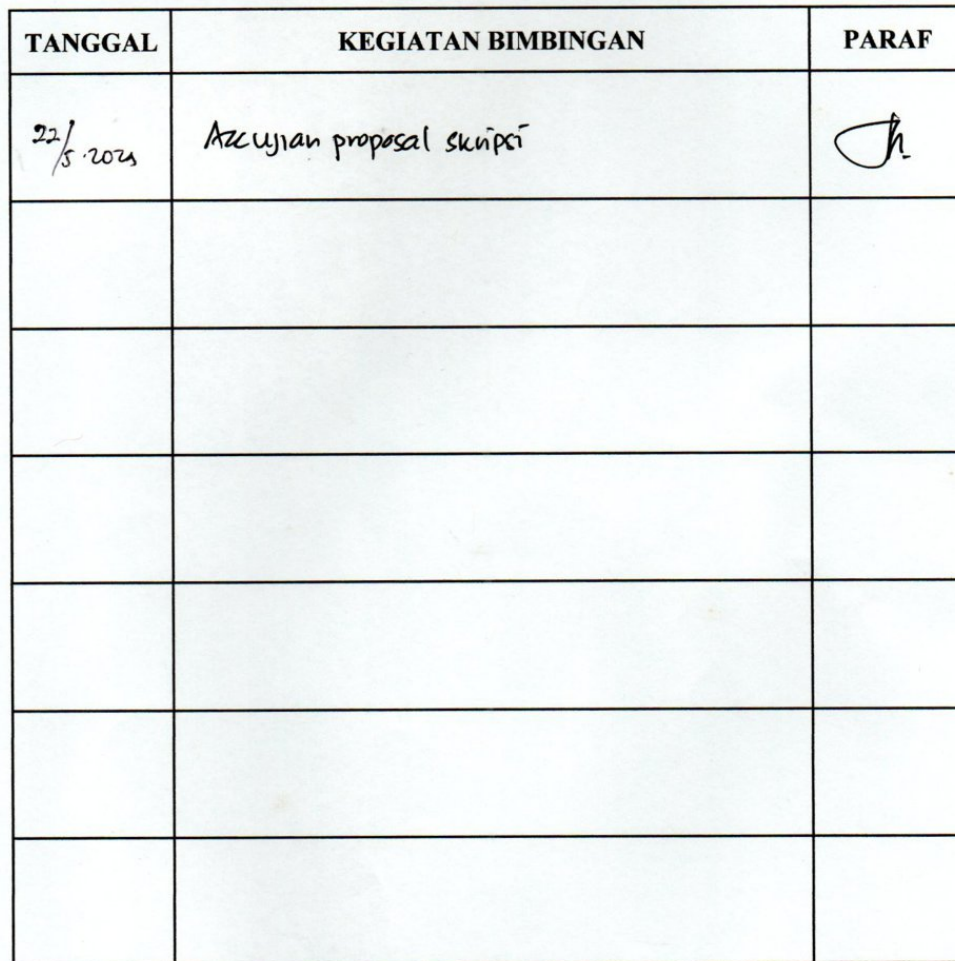 TANGGAL KEGIATAN BIMBINGAN PARAF
22/5.202 Acc ujian proposal skripsi